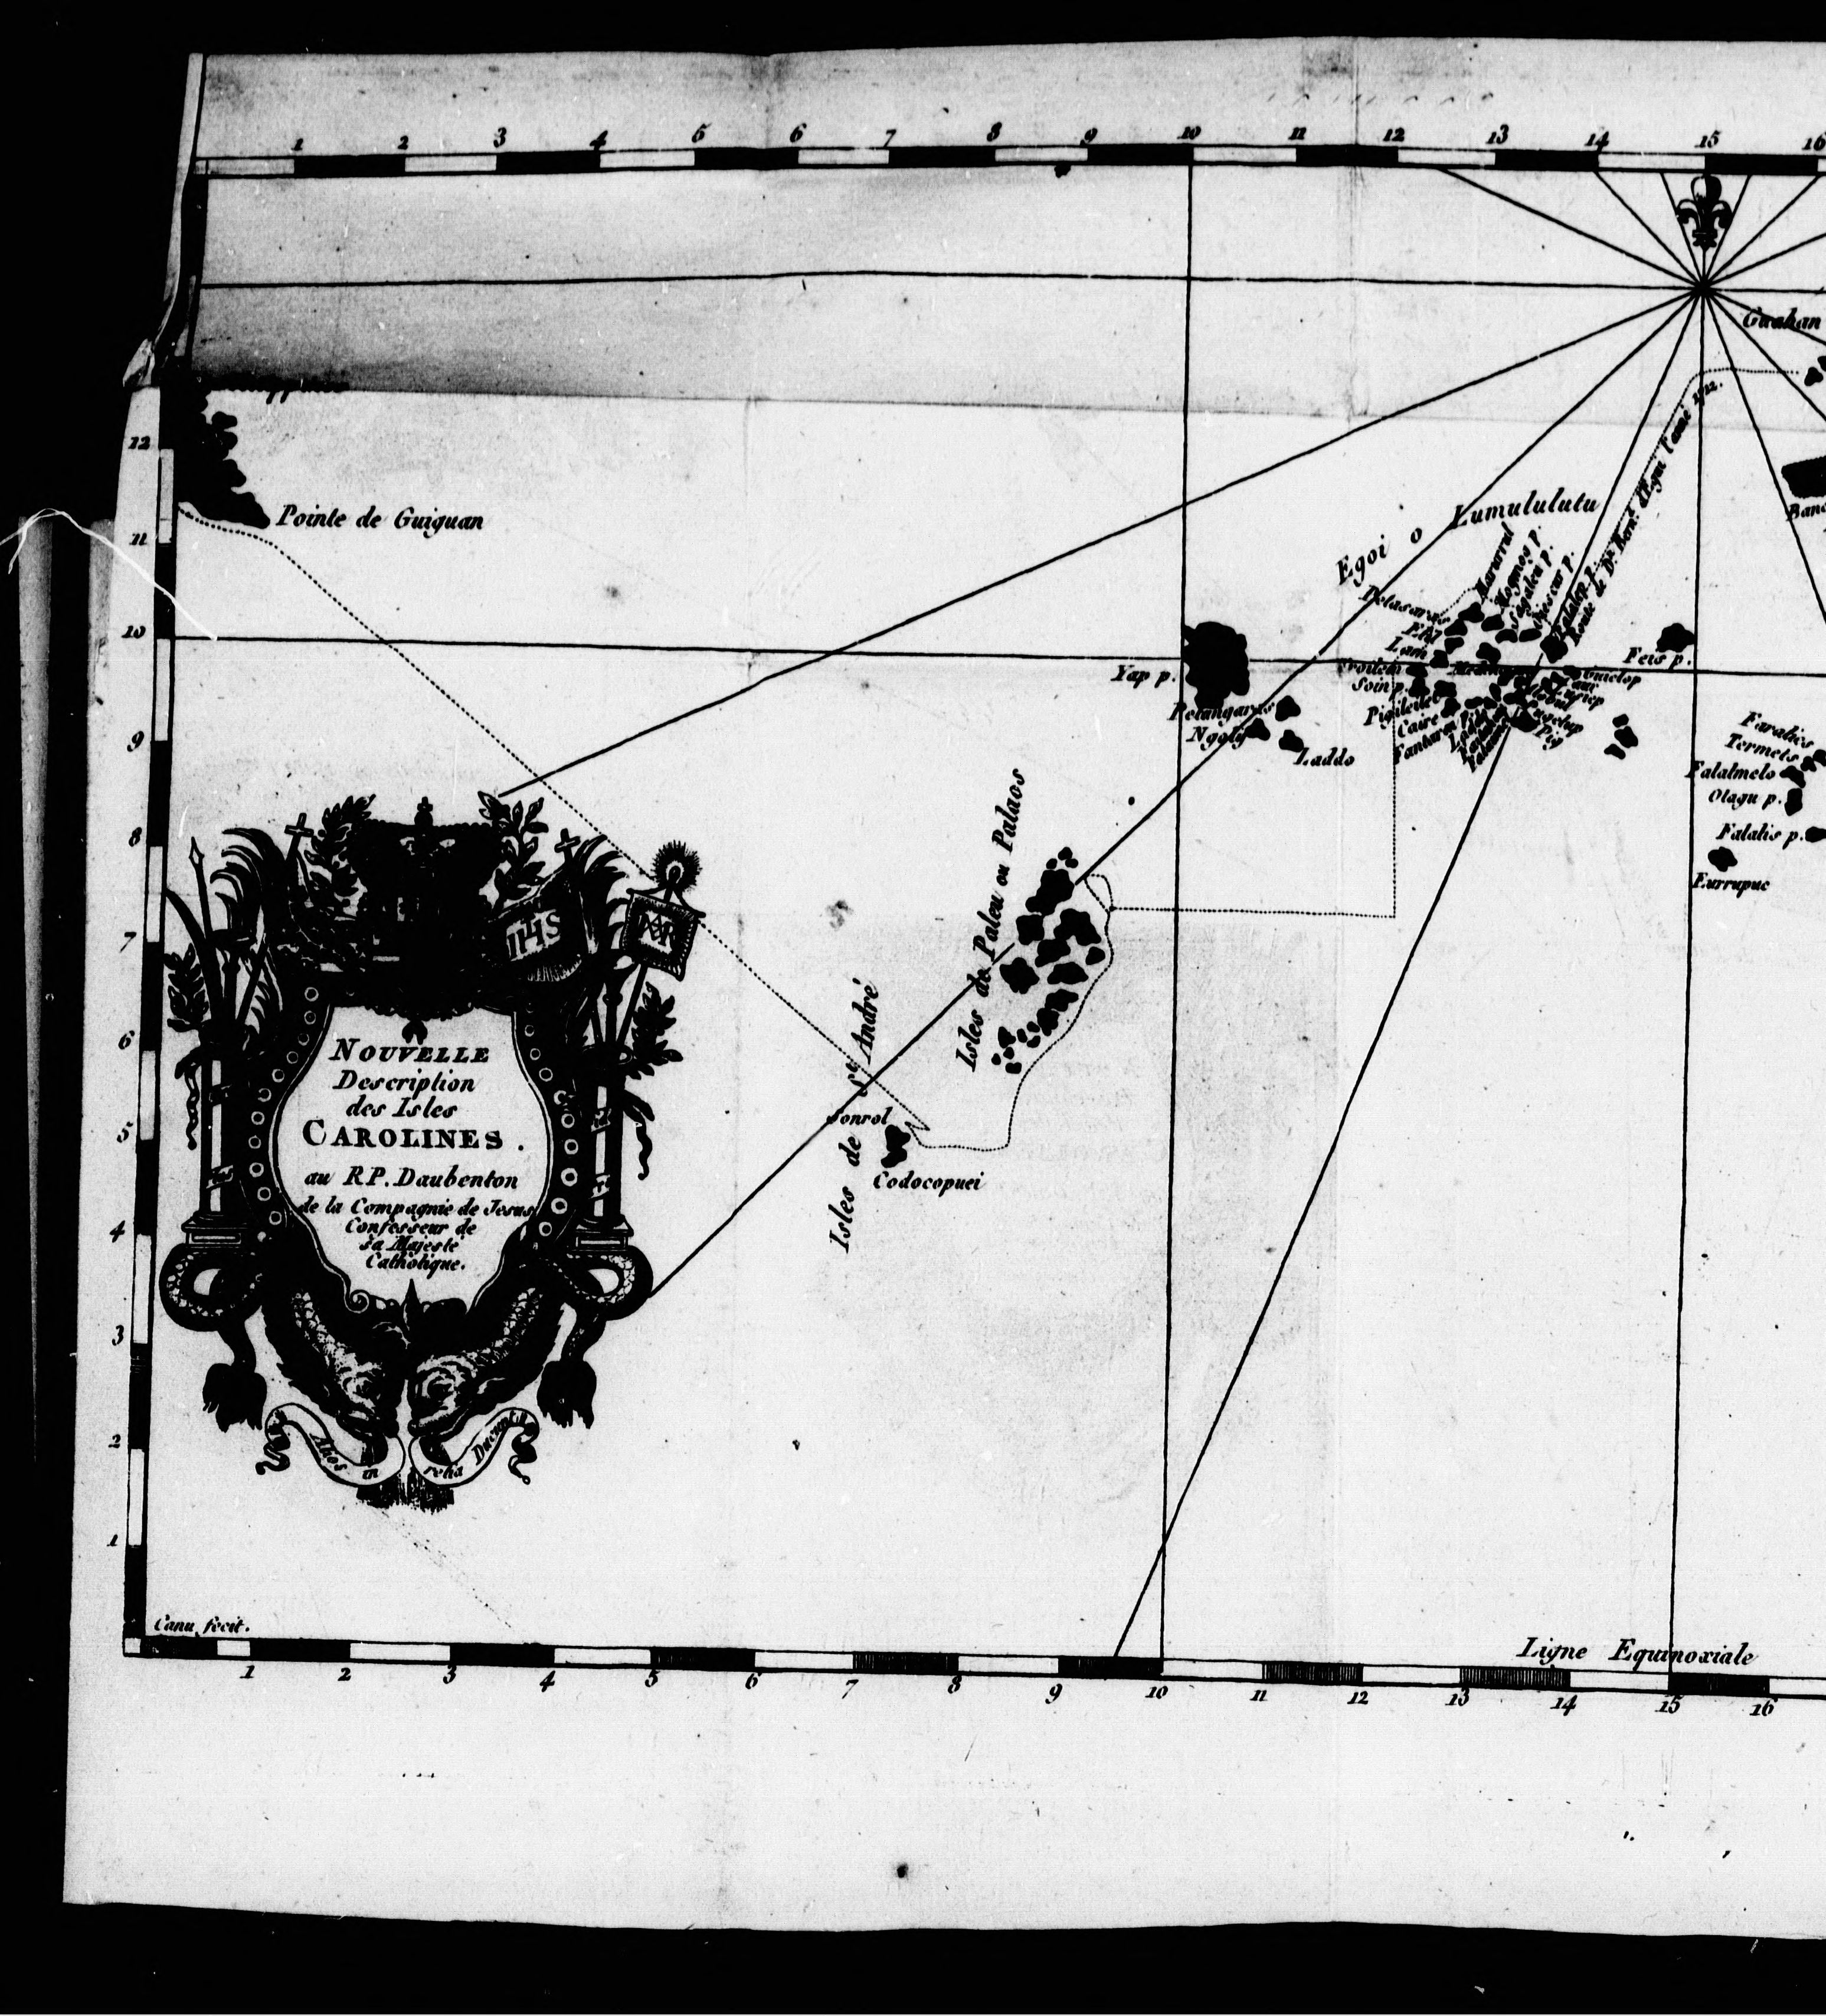 1 2 3 4 5 6 7 8 9 10 11 12 13 14 15 16
Guahan
12
11
10
9
8
7
6
5
4
3
2
1
Pointe de Guiguan
Lumululutu
Egoi o
Mogmog p.
Falalep p.
Route de Dn. Bern.d d'Egui l'anné 1712.
Yap p.
Feis p.
Lam
Soin p.
Pigileilet
Caire
Pig
Ngoly
Laddo
Faralies
Termets
Falalmelo
Olagu p.
Falalis p.
Eurrupuc
Isles de Paleu ou Palaos
Isles de St. André
Sonrol
Codocopuei
IHS
NOUVELLE
Description
des Isles
CAROLINES.
au R.P. Daubenton
de la Compagnie de Jesus
Confesseur de
sa Majesté
Catholique.
Canu fecit.
Ligne Equinoxiale
1 2 3 4 5 6 7 8 9 10 11 12 13 14 15 16